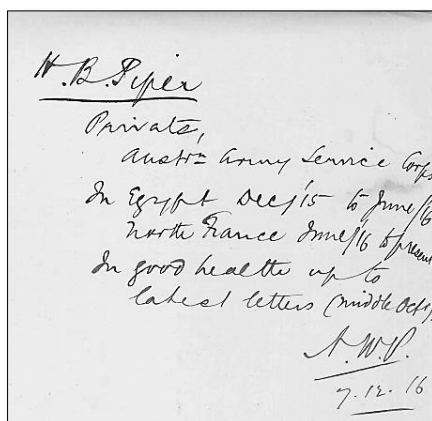 H. B. Piper
Private,
Austrn Army Service Corps
In Egypt Dec/15 to June/16
North France June/16 to present
In good health up to
latest letters (middle Oct/
A.W.P.
7.12.16